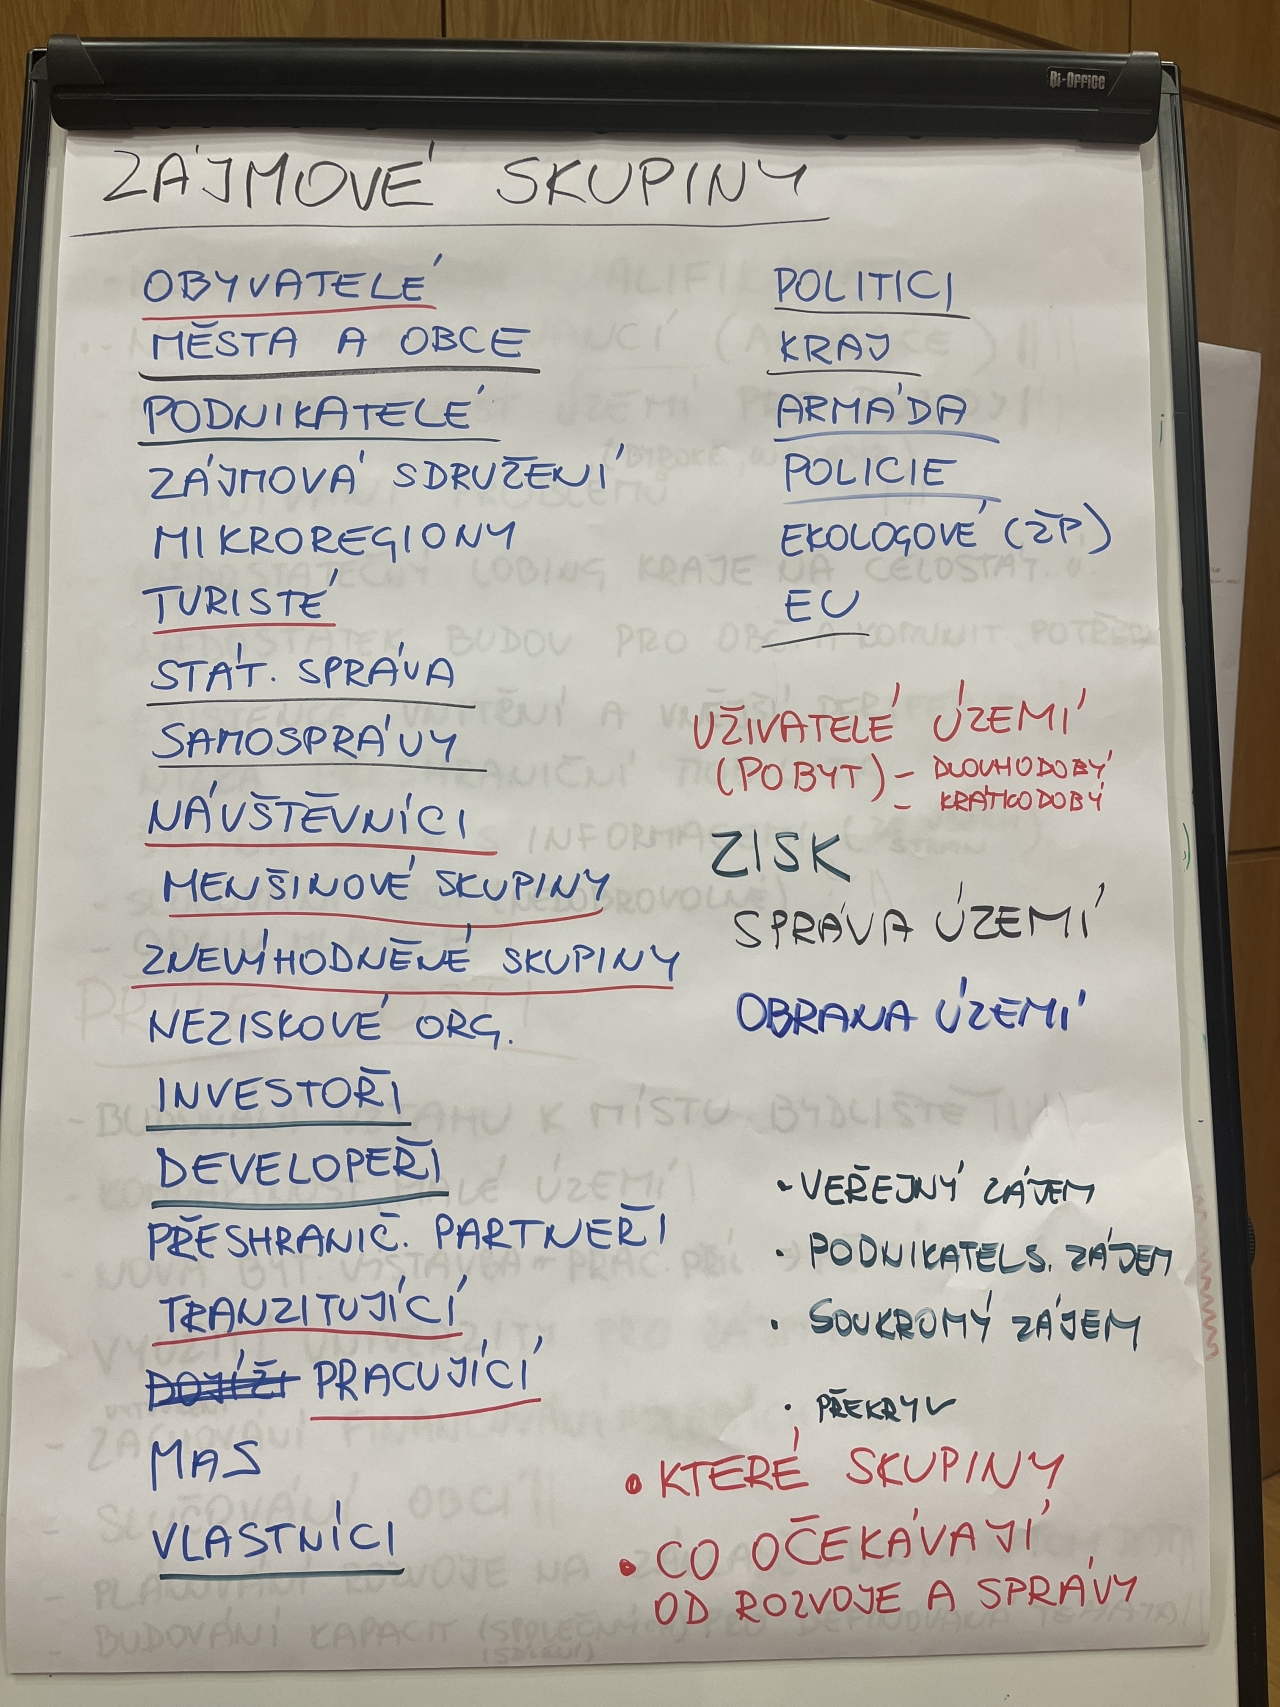 Bi-Office
ZÁJMOVÉ SKUPINY
OBYVATELÉ
MĚSTA A OBCE
PODNIKATELÉ
ZÁJMOVÁ SDRUŽENÍ
MIKROREGIONY
TURISTÉ
STÁT. SPRÁVA
SAMOSPRÁVY
NÁVŠTĚVNÍCI
MENŠINOVÉ SKUPINY
ZNEVÍHODNĚNÉ SKUPINY
NEZISKOVÉ ORG.
INVESTOŘI
DEVELOPEŘI
PŘESHRANIČ. PARTNEŘI
TRANZITUJÍCÍ
DOJÍŽI PRACUJÍCÍ
MAS
VLASTNÍCI
POLITICI
KRAJ
ARMÁDA
POLICIE
EKOLOGOVÉ (ŽP)
EU
UŽIVATELÉ ÚZEMÍ
(POBYT) - DLOUHODOBÝ
- KRÁTKODOBÝ
ZISK
SPRÁVA ÚZEMÍ
OBRANA ÚZEMÍ
- VEŘEJNÝ ZÁJEM
• PODNIKATELS. ZÁJEM
• SOUKROMÝ ZÁJEM
• PŘEKRYV
• KTERÉ SKUPINY
• CO OČEKÁVAJÍ
OD ROZVOJE A SPRÁVY